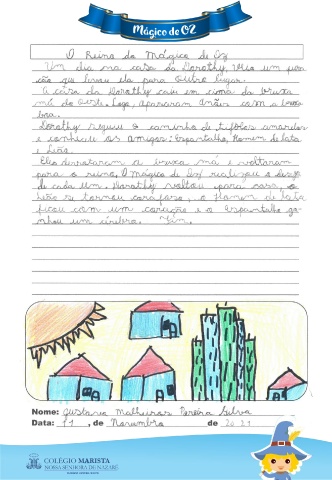 Mágico de OZ
O Reino do Mágico de Oz
Um dia na casa da Dorothy, veio um fura
cão que levou ela para outro lugar.
A casa da Dorothy caiu em cima da bruxa
má do Oeste. Logo, apareceram anões com a bruxa
boa.
Dorothy seguiu o caminho de tijolos amarelos
e conheceu os amigos: Espantalho, Homem de lata
e Leão.
Eles derrotaram a bruxa má e voltaram
para o reino. O Mágico de Oz realizou o desejo
de cada um. Dorothy voltou para casa, o
Leão se tornou corajoso, o Homem de lata
ficou com um coração e o Espantalho ga-
nhou um cérebro. Fim.
Nome: Gustavo Malheiros Pereira Silva
Data: 11 , de Novembro de 2021
COLÉGIO MARISTA
NOSSA SENHORA DE NAZARÉ